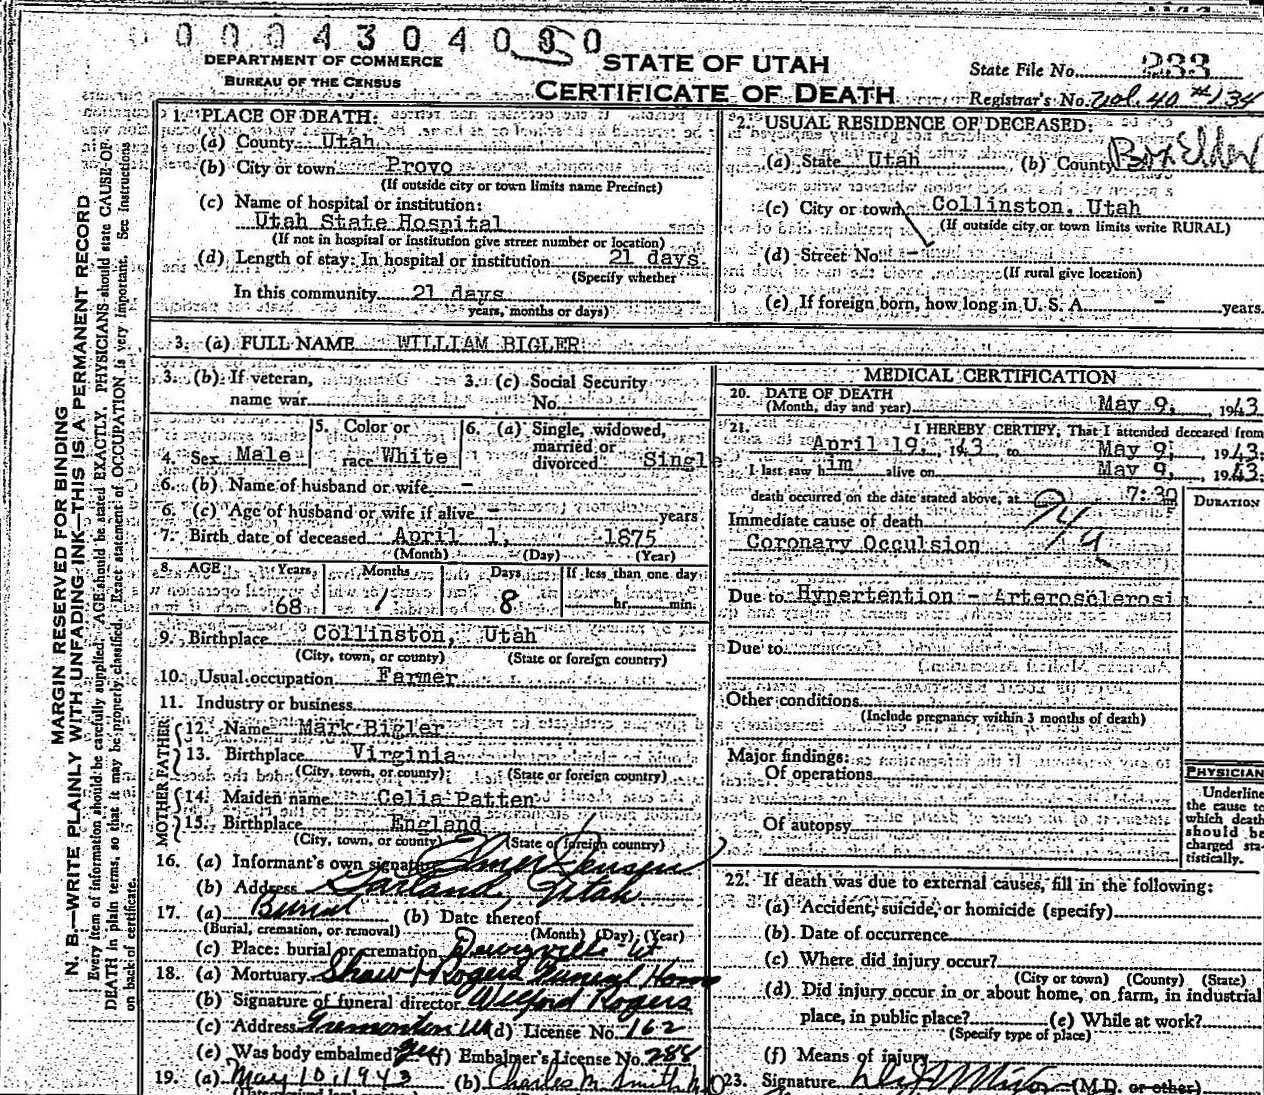 0 0 0 4 3 0 4 0 0 0
DEPARTMENT OF COMMERCE
BUREAU OF THE CENSUS
STATE OF UTAH
CERTIFICATE OF DEATH
State File No. 233
Registrar's No. Vol. 40 #134
MARGIN RESERVED FOR BINDING
N. B.—WRITE PLAINLY WITH UNFADING INK—THIS IS A PERMANENT RECORD
Every item of information should be carefully supplied. AGE should be stated EXACTLY. PHYSICIANS should state CAUSE OF
DEATH in plain terms, so that it may be properly classified. Exact statement of OCCUPATION is very important. See instructions
on back of certificate.
1. PLACE OF DEATH:
(a) County Utah
(b) City or town Provo
(If outside city or town limits name Precinct)
(c) Name of hospital or institution:
Utah State Hospital
(If not in hospital or institution give street number or location)
(d) Length of stay: In hospital or institution 21 days
(Specify whether
In this community 21 days
years, months or days)
2. USUAL RESIDENCE OF DECEASED:
(a) State Utah (b) County Box Elder
(c) City or town Collinston, Utah
(If outside city or town limits write RURAL)
(d) Street No. -
(If rural give location)
(e) If foreign born, how long in U. S. A. - years.
3. (a) FULL NAME WILLIAM BIGLER
3. (b) If veteran, 3. (c) Social Security
name war No.
4. Sex Male 5. Color or race White 6. (a) Single, widowed, married or divorced Single
6. (b) Name of husband or wife -
6. (c) Age of husband or wife if alive - years
7. Birth date of deceased April 1, 1875
(Month) (Day) (Year)
8. AGE Years Months Days If less than one day
68 1 8 hr. min.
9. Birthplace Collinston, Utah
(City, town, or county) (State or foreign country)
10. Usual occupation Farmer
11. Industry or business
FATHER
12. Name Mark Bigler
13. Birthplace Virginia
(City, town, or county) (State or foreign country)
MOTHER
14. Maiden name Celia Patten
15. Birthplace England
(City, town, or county) (State or foreign country)
16. (a) Informant's own signature Elmer Jensen
(b) Address Garland, Utah
17. (a) Burial (b) Date thereof
(Burial, cremation, or removal) (Month) (Day) (Year)
(c) Place: burial or cremation Deweyville Ut
18. (a) Mortuary Shaw & Rogers Funeral Home
(b) Signature of funeral director Welford Rogers
(c) Address Tremonton Ut (d) License No. 162
(e) Was body embalmed yes (f) Embalmer's License No. 288
19. (a) May 10, 1943 (b) Charles M. Smith M.D
MEDICAL CERTIFICATION
20. DATE OF DEATH
(Month, day and year) May 9, 1943
21. I HEREBY CERTIFY, That I attended deceased from
April 19, 1943 to May 9, 1943;
I last saw him alive on May 9, 1943;
death occurred on the date stated above, at 7:30
Immediate cause of death 94a
Coronary Occulsion
Due to Hypertention - Arterosclerosis
Due to
Other conditions
(Include pregnancy within 3 months of death)
Major findings:
Of operations
Of autopsy
DURATION
PHYSICIAN
Underline
the cause to
which death
should be
charged sta-
tistically.
22. If death was due to external causes, fill in the following:
(a) Accident, suicide, or homicide (specify)
(b) Date of occurrence
(c) Where did injury occur?
(City or town) (County) (State)
(d) Did injury occur in or about home, on farm, in industrial
place, in public place? (e) While at work?
(Specify type of place)
(f) Means of injury
23. Signature (M.D. or other)